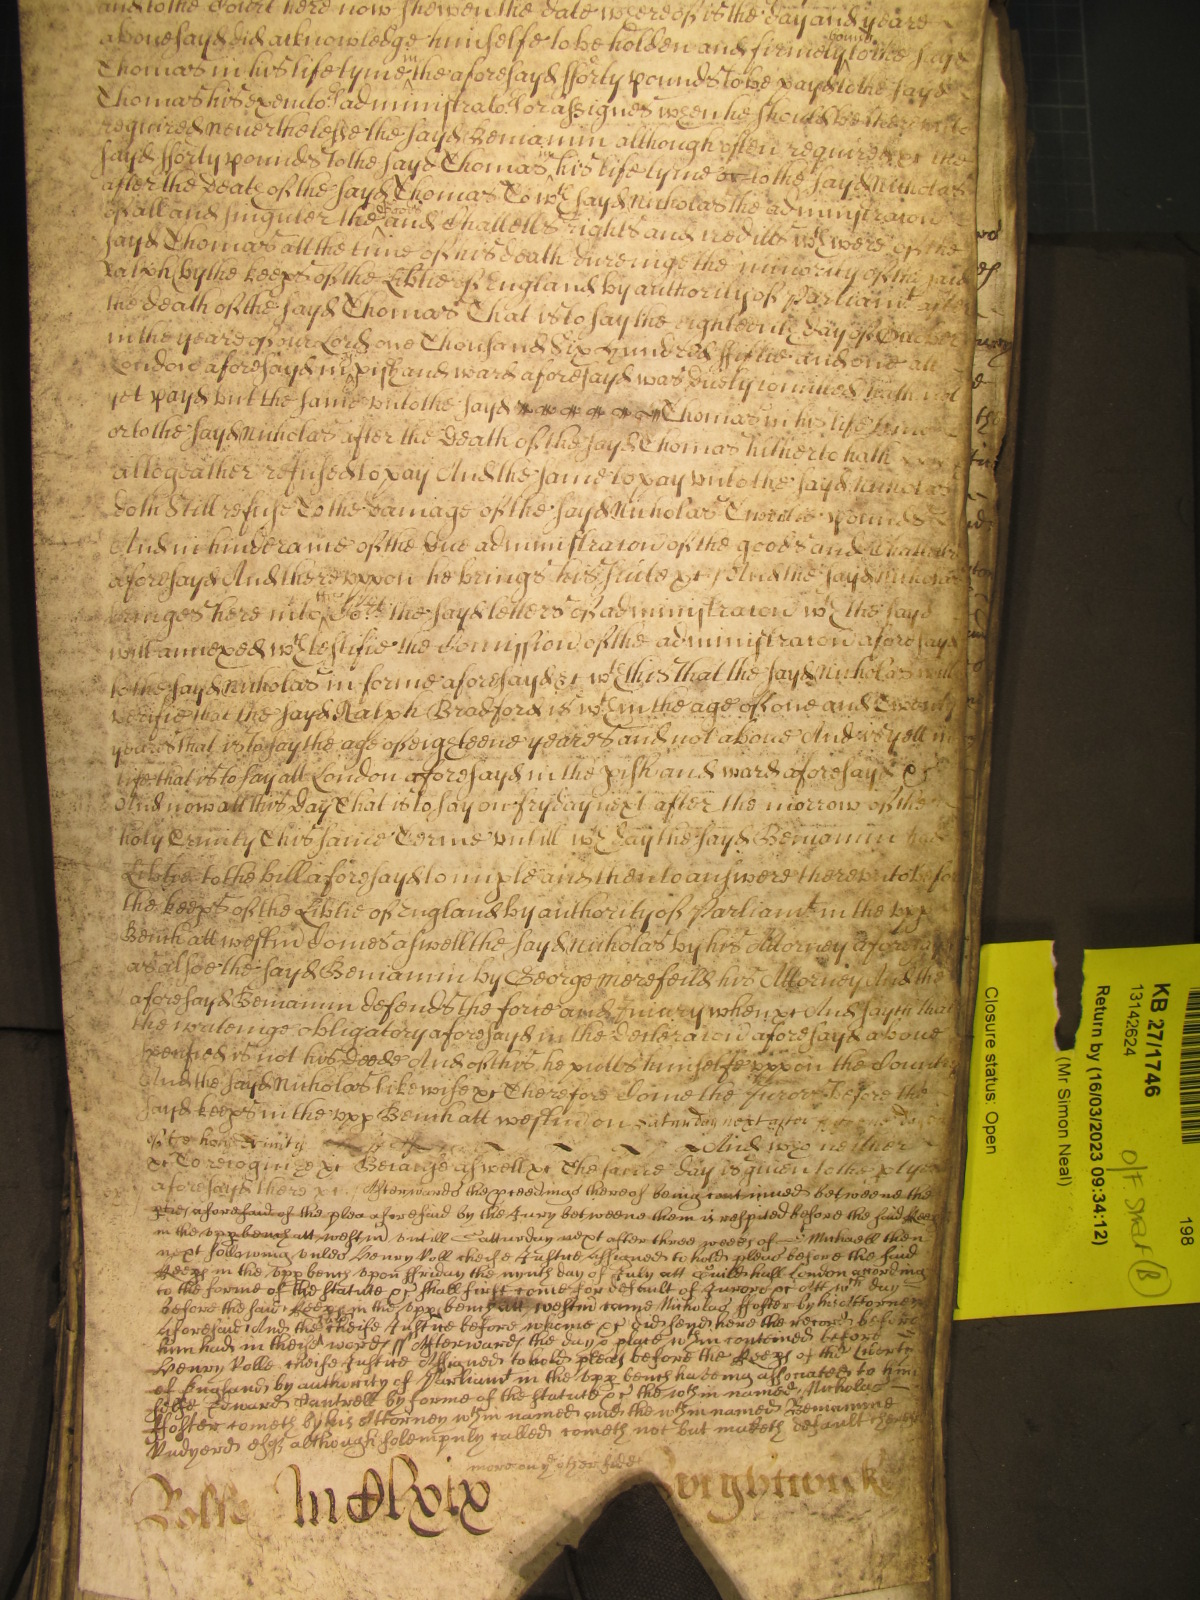 and to the Court here now shewen the date whereof is the day and yeare
abovesayd did acknowledge himselfe to be holden and firmely bound to the sayd
Thomas in his life tyme in the aforesayd fforty pounds to be payd to the sayd
Thomas his executors administrators or assignes when he should be thereunto
required Neverthelesse the sayd Beniamin although often required &c the
sayd fforty pounds to the sayd Thomas in his life tyme or to the sayd Nicholas
after the death of the sayd Thomas To wch sayd Nicholas the administracon
of all and singuler the goods and Chattells rights and credits wch were of the
sayd Thomas att the tyme of his death dureinge the minority of the said
Ralph by the keeps of the Libtie of England by authority of Parliamt after
the death of the sayd Thomas That is to say the eighteenth day of October
in the yeare of our Lord one Thousand Six Hundred ffiftie and one att
London aforesayd in the pish and ward aforesayd was duely comitted hath not
yet payd but the same unto the sayd Thomas in his life tyme
or to the sayd Nicholas after the death of the sayd Thomas hitherto hath
altogeather refused to pay And the same to pay unto the sayd Nicholas
doth still refuse To the damage of the sayd Nicholas Twentie pounds
And in hinderance of the due administracon of the goods and Chattells
aforesayd And thereuppon he brings his suite &c And the sayd Nicholas
bringes here into the Court the sayd letters of administracon wth the sayd
will annexed wch testifie the Comission of the administracon aforesayd
to the sayd Nicholas in forme aforesayd &c wth this that the sayd Nicholas will
verifie that the sayd Ralph Bradford is wthin the age of one and Twenty
yeares that is to say the age of eighteene yeares and not above And is yett in
life that is to say att London aforesayd in the pish and ward aforesayd &c
And now att this day That is to say on fryday next after the morrow of the
holy Trinity This same Terme untill wch day the sayd Beniamin had
Libtie to the bill aforesayd to imple and then to answere thereunto before
the keeps of the Libtie of England by authority of Parliamt in the upp
Bench att westm Comes aswell the sayd Nicholas by his Attorney aforesayd
as alsoe the sayd Beniamin by George Merefeild his Attorney And the
aforesayd Beniamin defends the force and Iniury when &c And sayth that
the writeinge obligatory aforesayd in the Declaracon aforesayd above
specified is not his deede And of this he putts himselfe uppon the Country
And the sayd Nicholas likewise &c Therefore Come the Jurors before the
sayd keeps in the upp Bench att westm on Saturday next after
of the holy Trinity And who neither
&c To recognize &c Because aswell &c The same day is given to the ptyes
aforesayd there &c Afterwards the pceedings thereof being continued betweene the
pties aforesaid of the plea aforesaid by the Jury betweene them is respited before the said keeps
in the upp bench att westm untill Satturday next after three weeks of St Michaell then
next following unles Henry Roll cheife Justice assigned to hold pleas before the said
keeps in the upp bench upon ffriday the nynth day of July att Guildhall London according
to the forme of the statute &c shall first come for default of Jurors &c Att wch day
before the said keeps in the upp bench att westm came Nicholas ffoster by his Attorney
aforesaid And the said cheife Justice before whome &c did send here the record before
him had in theise words ss Afterwards the day & place wthin conteined before
Henry Rolle cheife Justice Assigned to hold pleas before the keeps of the Liberty
of England by authority of Parliamt in the upp bench haveing associated to him
selfe Edward Cantrell by forme of the statute &c the wthin named Nicholas
ffoster cometh by his Attorney wthin named and the wthin named Beniamine
Rudyerd esqr although solempnly called cometh not but maketh default therefore
more on ye other side
Rolle
KB 27/1746
13142624
198
Return by (16/03/2023 09:34:12)
(Mr Simon Neal)
Closure status: Open